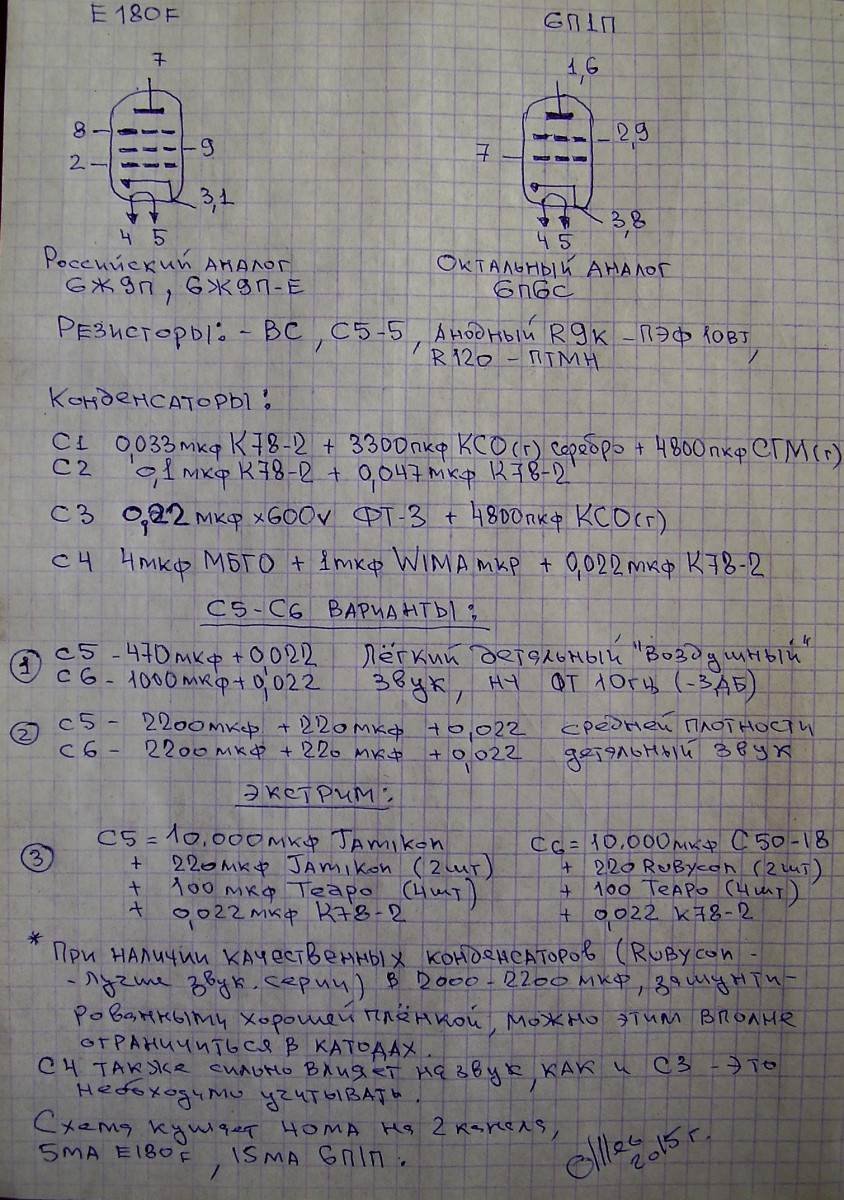 E180F 6П1П
7 1,6
8 9 2
7 2,9
3,1 3,8
4 5 4 5
Российский аналог Октальный аналог
6Ж9П, 6Ж9П-Е 6П6С
Резисторы: - ВС, С5-5, Анодный R9к - ПЭФ 10вт,
R120 - ПТМН
Конденсаторы:
С1 0,033мкф К78-2 + 3300пкф КСО(г) серебро + 4800пкф СГМ(г)
С2 0,1мкф К78-2 + 0,047мкф К78-2
С3 0,22мкф x600v ФТ-3 + 4800пкф КСО(г)
С4 4мкф МБГО + 1мкф WIMA мкр + 0,022мкф К78-2
С5-С6 ВАРИАНТЫ:
1 С5 - 470мкф + 0,022 Лёгкий детальный "воздушный"
С6 - 1000мкф + 0,022 звук, НЧ от 10гц (-3ДБ)
2 С5 - 2200мкф + 220мкф + 0,022 средней плотности
С6 - 2200мкф + 220мкф + 0,022 детальный звук
ЭКСТРИМ:
3 С5 = 10.000мкф Jamikon С6 = 10.000мкф С50-18
+ 220мкф Jamikon (2шт) + 220 Rubycon (2шт)
+ 100мкф Teapo (4шт) + 100 Teapo (4шт)
+ 0,022мкф К78-2 + 0,022 К78-2
* При наличии качественных конденсаторов (Rubycon -
- лучше звук. серии) в 2000-2200мкф, зашунти-
рованными хорошей плёнкой, можно этим вполне
ограничиться в катодах.
С4 также сильно влияет на звук, как и С3 - это
необходимо учитывать.
Схема кушает 40ма на 2 канала,
5ма E180F, 15ма 6П1П.
2015г.